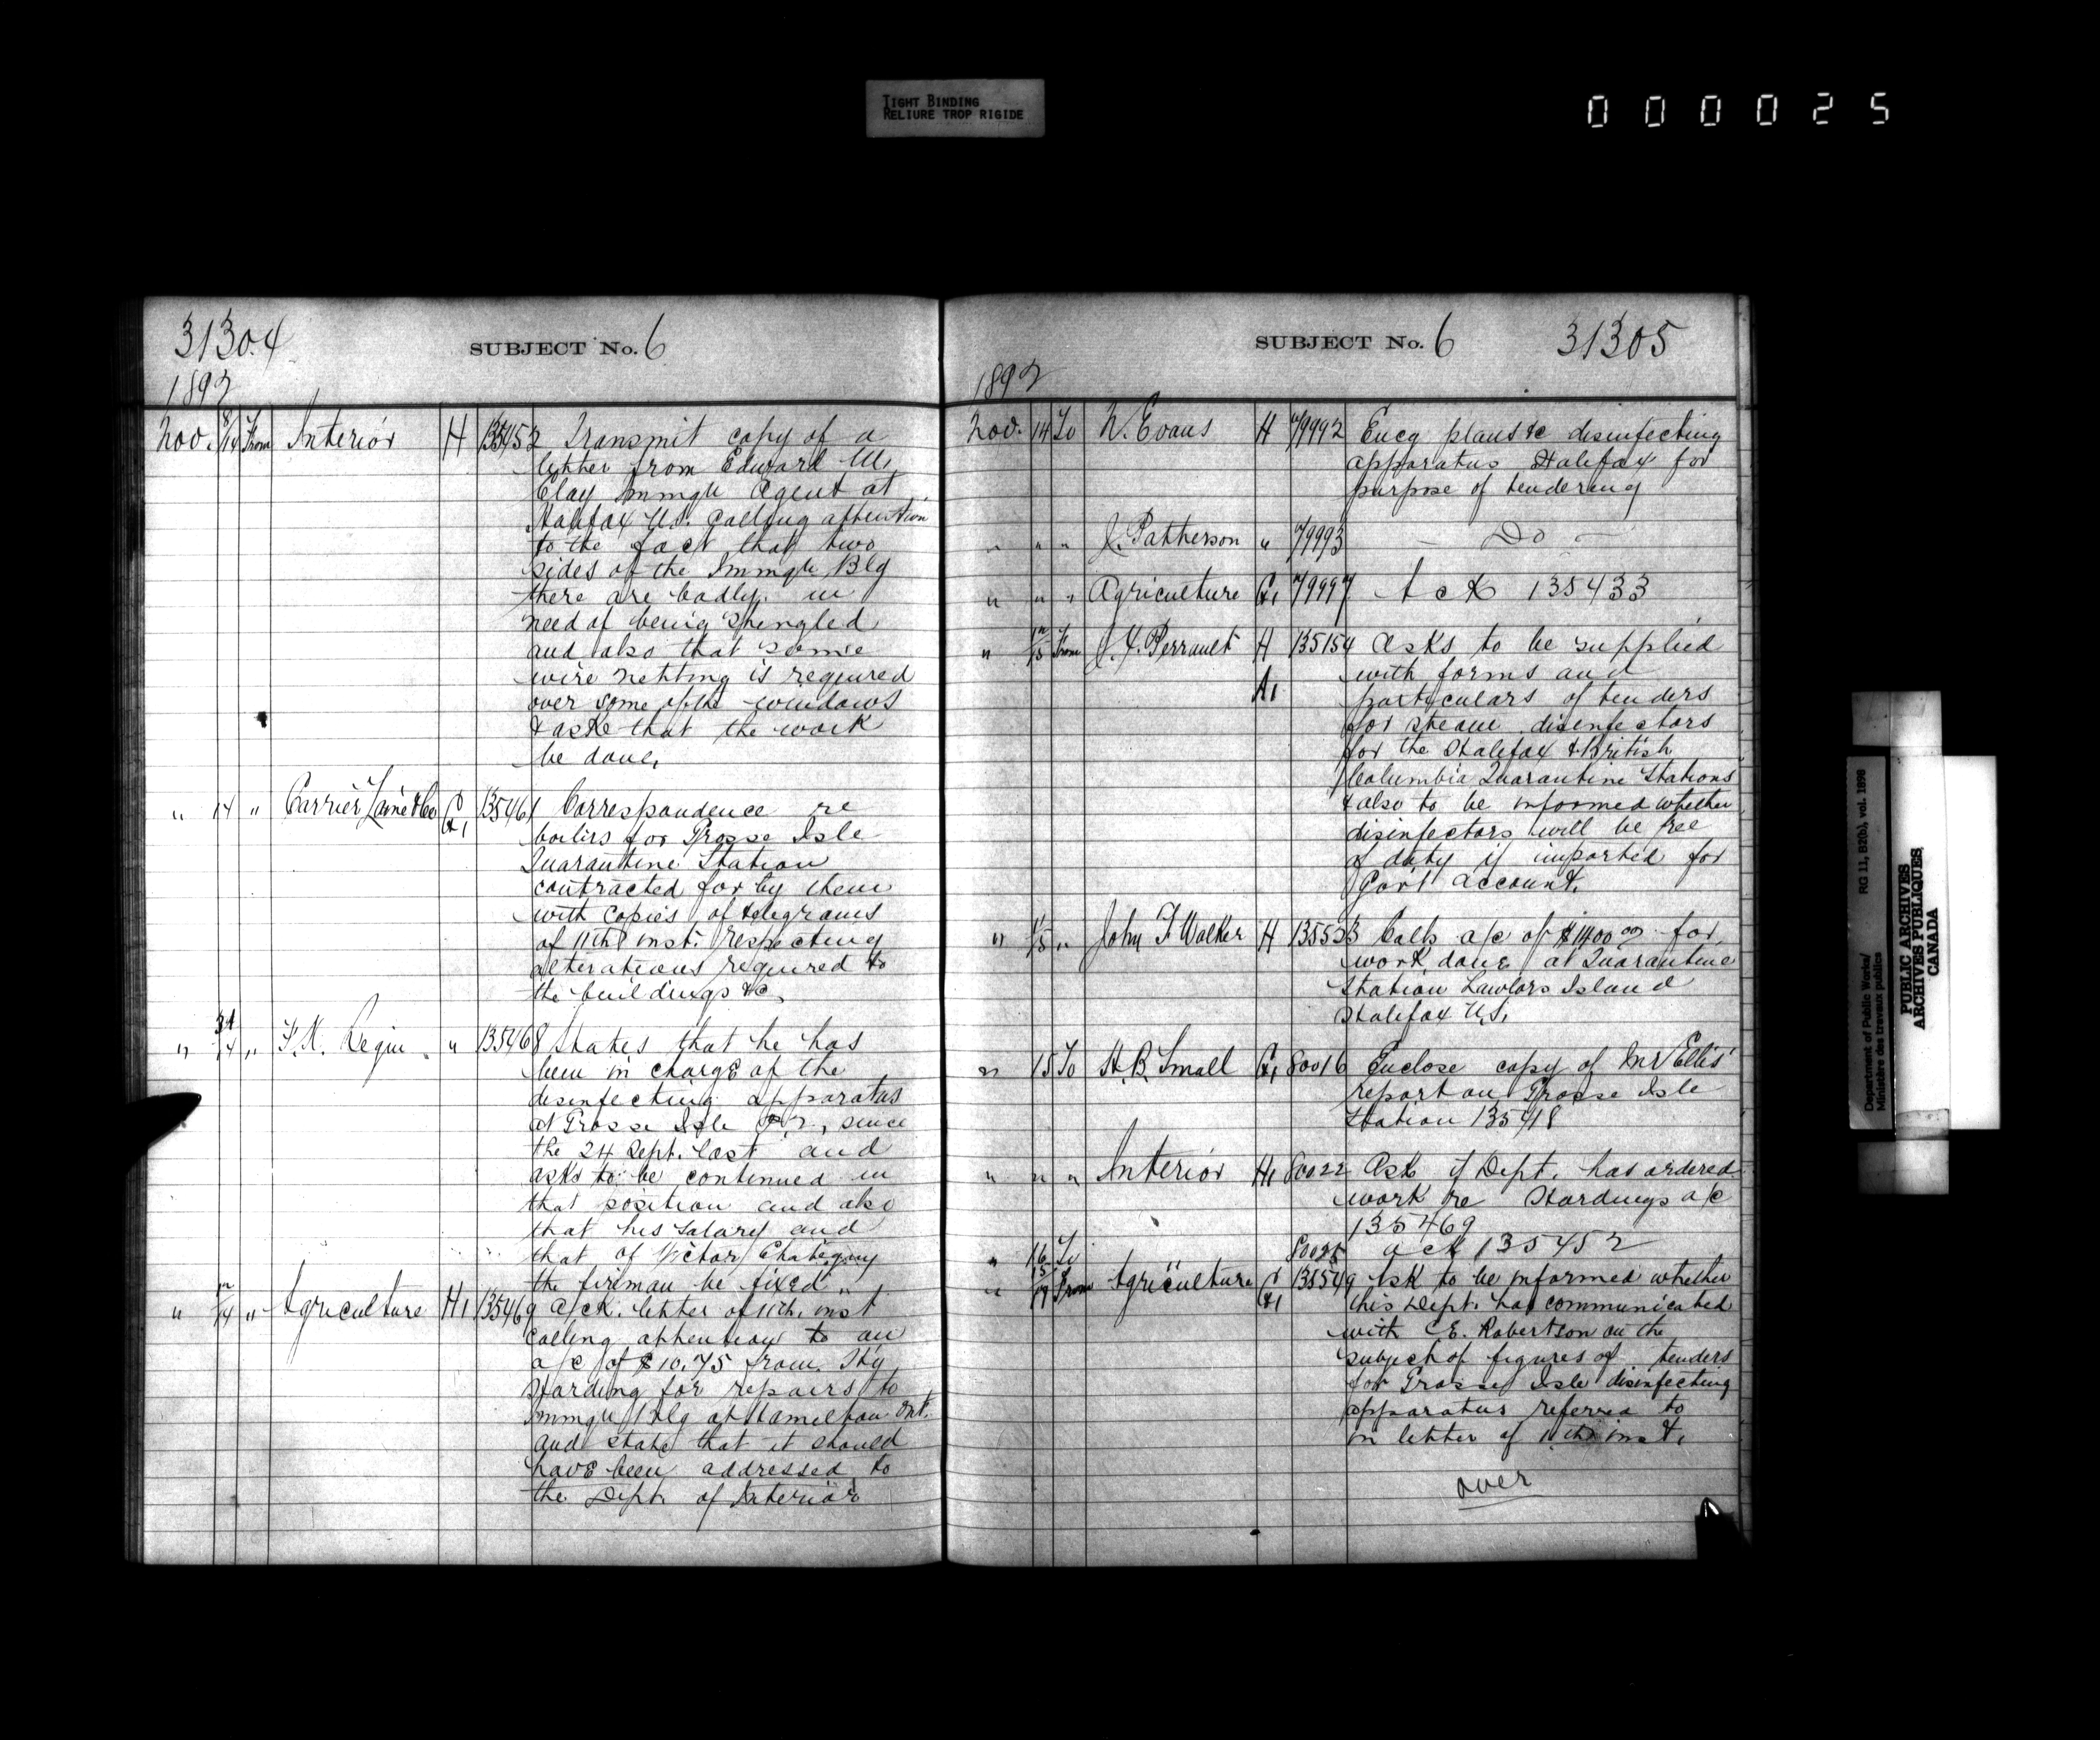 TIGHT BINDING
RELIURE TROP RIGIDE
000025
31304
SUBJECT No. 6
1892
Nov. 8/14 From Interior H 135452 Transmit copy of a
letter from Edward M.
Clay Immgn Agent at
Halifax N.S. calling attention
to the fact that two
sides of the Immgn Blg
there are badly in
need of being shingled
and also that some
wire netting is required
over some of the windows
& asks that the work
be done.
" 14 " Carrier Lainé & Co G1 135461 Correspondence re
boilers for Grosse Isle
Quarantine Station
contracted for by them
with copies of telegrams
of 11th inst. respecting
alterations required to
the buildings &c.
" 14 " F.X. " 135468 States that he has
been in charge of the
disinfecting apparatus
at Grosse Isle P.Q., since
the 24 Sept. last and
asks to be continued in
that position and also
that his salary and
that of Victor
the fireman be fixed
" 12/14 " Agriculture H1 135469 Ack. letter of 11th. inst
calling attention to an
a/c of $10.75 from Hy
Harding for repairs to
Immgn Blg at Hamilton Ont.
and state that it should
have been addressed to
the Dept. of Interior
SUBJECT No. 6
31305
1892
Nov. 14 To W. Evans H 79992 Encg plans &c disinfecting
apparatus Halifax for
purpose of tendering
" " " J. Patterson " 79993 - Do -
" " " Agriculture G1 79997 Ack 135433
" 12/15 From J.X. Perrault H 135154 Asks to be supplied
A1 with forms and
particulars of tenders
for steam disinfectors
for the Halifax & British
Columbia Quarantine Stations
& also to be informed whether
disinfectors will be free
of duty if imported for
Gov't account.
" 11/15 " John F Walker H 135523 Calls a/c of $1400.00 for
work done at Quarantine
Station Lawlors Island
Halifax N.S.
" 15 To H.B. Small G1 80016 Enclose copy of Mr Ellis'
report on Grosse Isle
Station 135418
" " " Interior H1 80022 Ask if Dept. has ordered
work re Hardings a/c
135469
" 16 To " ack 135452
" 15/17 From Agriculture G1 135549 Ask to be informed whether
this Dept. has communicated
with C.E. Robertson on the
subject of figures of tenders
for Grosse Isle disinfecting
apparatus referred to
in letter of 11th inst.
over
Department of Public Works/ RG 11, B2(b), vol. 1898
Ministère des travaux publics
PUBLIC ARCHIVES
ARCHIVES PUBLIQUES
CANADA